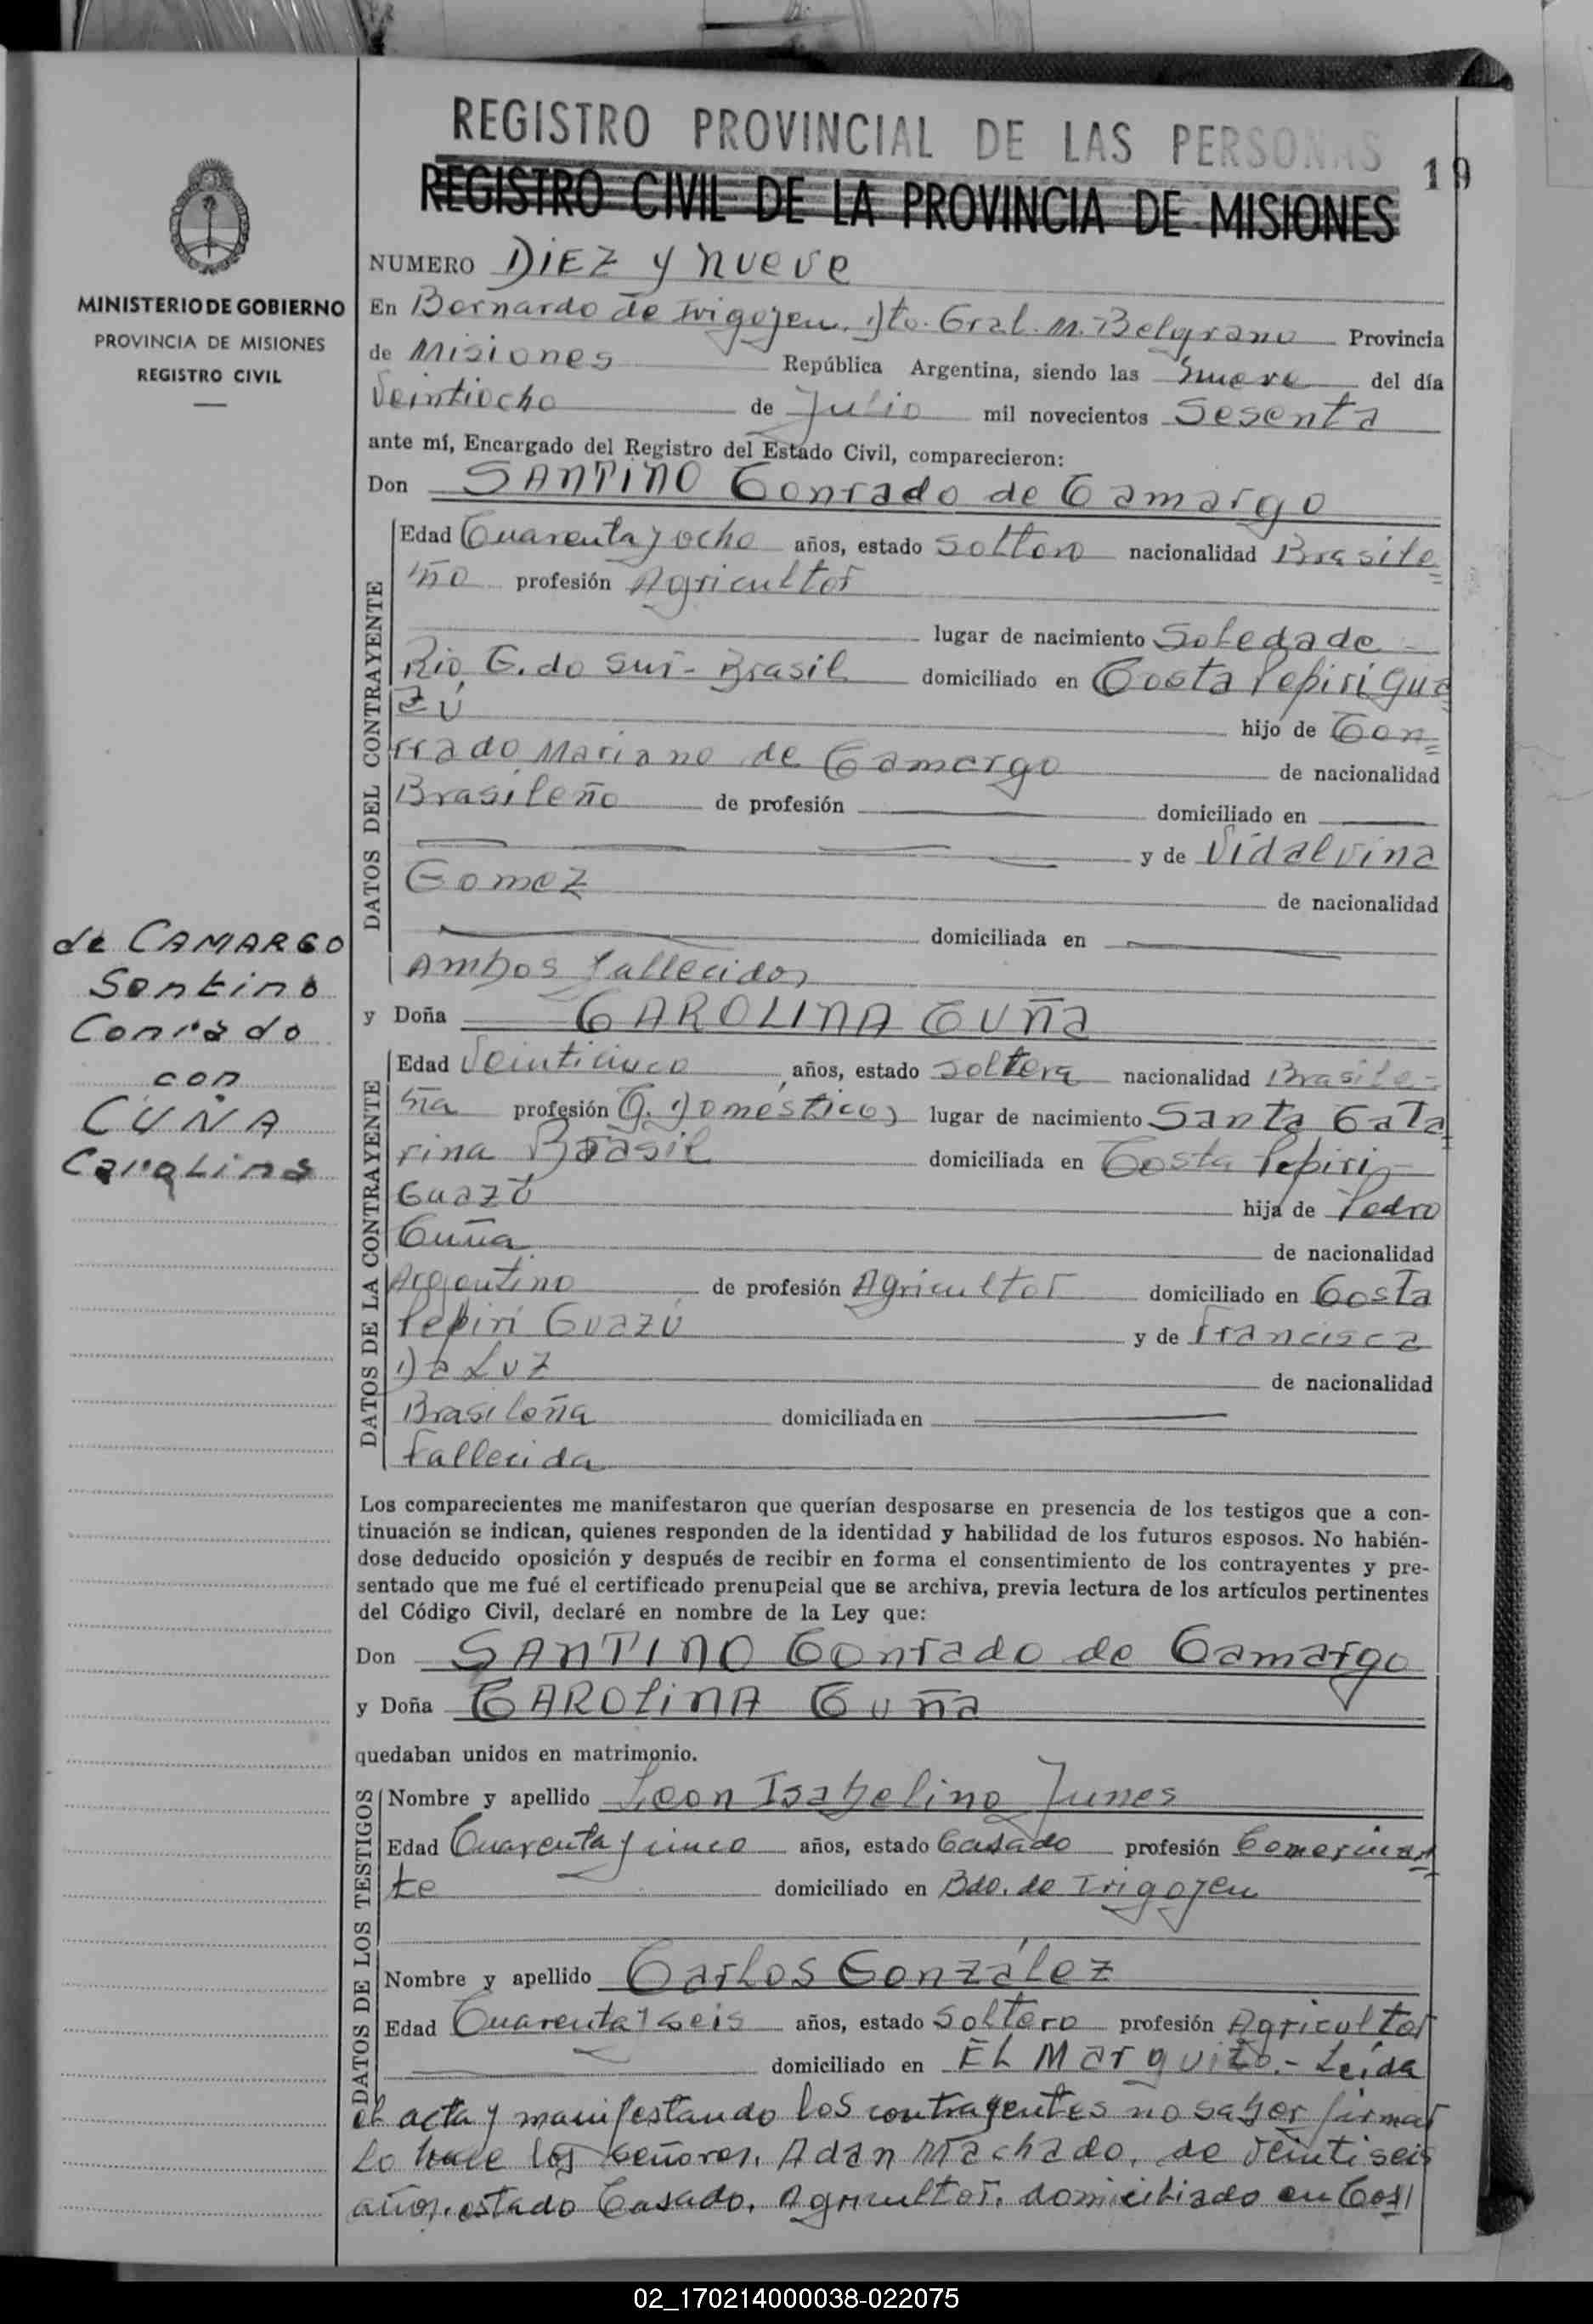 REGISTRO PROVINCIAL DE LAS PERSONAS
REGISTRO CIVIL DE LA PROVINCIA DE MISIONES
19
MINISTERIO DE GOBIERNO
PROVINCIA DE MISIONES
REGISTRO CIVIL
NUMERO DiEZ y nueve
En Bernardo de Irigoyen, Dto. Gral. M. Belgrano Provincia
de Misiones República Argentina, siendo las nueve del día
Veintiocho de Julio mil novecientos Sesenta
ante mí, Encargado del Registro del Estado Civil, comparecieron:
Don SANTINO Conrado de Camargo
DATOS DEL CONTRAYENTE
Edad Cuarenta y ocho años, estado Soltero nacionalidad Brasile=
ño profesión Agricultor
lugar de nacimiento Soledade
Rio G. do Sur - Brasil domiciliado en Costa Pepiri Gua=
zú hijo de Con=
rrado Mariano de Camargo de nacionalidad
Brasileño de profesión domiciliado en
y de Vidalvina
Gomez de nacionalidad
domiciliada en
Ambos fallecidos
de CAMARGO
Santino
Conrado
con
CUÑA
Carolina
y Doña CAROLINA CUñA
DATOS DE LA CONTRAYENTE
Edad Veinticinco años, estado Soltera nacionalidad Brasile=
ña profesión Q. Domésticos lugar de nacimiento Santa Cata=
rina Brasil domiciliada en Costa Pepiri
Guazú hija de Pedro
Cuña de nacionalidad
Argentino de profesión Agricultor domiciliado en Costa
Pepiri Guazú y de Francisca
Da Luz de nacionalidad
Brasileña domiciliada en
Fallecida
Los comparecientes me manifestaron que querían desposarse en presencia de los testigos que a con-
tinuación se indican, quienes responden de la identidad y habilidad de los futuros esposos. No habién-
dose deducido oposición y después de recibir en forma el consentimiento de los contrayentes y pre-
sentado que me fué el certificado prenupcial que se archiva, previa lectura de los artículos pertinentes
del Código Civil, declaré en nombre de la Ley que:
Don SANTINO Conrado de Camargo
y Doña CAROLINA Cuña
quedaban unidos en matrimonio.
DATOS DE LOS TESTIGOS
Nombre y apellido Leon Isabelino Junes
Edad Cuarenta y cinco años, estado Casado profesión Comercian=
te domiciliado en Bdo. de Irigoyen
Nombre y apellido Carlos González
Edad Cuarenta y seis años, estado Soltero profesión Agricultor
domiciliado en EL Marquito.- Leída
el acta y manifestando los contrayentes no saber firmar
lo hace los señores, Adan Machado, de Veintiseis
años, estado Casado, Agricultor, domiciliado en Cos
02_170214000038-022075